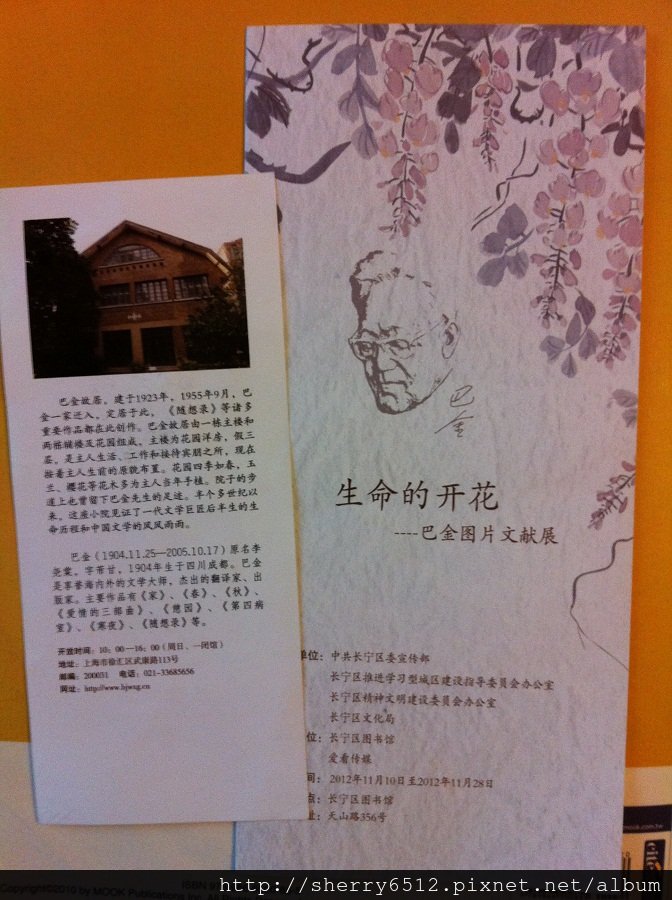 巴金故居，建于1923年，1955年9月，巴
金一家迁入，定居于此，《随想录》等诸多
重要作品都在此创作。巴金故居由一栋主楼和
两栋辅楼及花园组成，主楼为花园洋房，假三
层，是主人生活、工作和接待宾朋之所，现在
按着主人生前的原貌布置。花园四季如春，玉
兰、樱花等花木多为主人当年手植。院子的步
道上也曾留下巴金先生的足迹。半个多世纪以
来，这座小院见证了一代文学巨匠后半生的生
命历程和中国文学的风风雨雨。
巴金（1904.11.25—2005.10.17）原名李
尧棠，字芾甘，1904年生于四川成都。巴金
是享誉海内外的文学大师，杰出的翻译家、出
版家。主要作品有《家》、《春》、《秋》、
《爱情的三部曲》、《憩园》、《第四病
室》、《寒夜》、《随想录》等。
开放时间：10：00—16：00（周日、一闭馆）
地址：上海市徐汇区武康路113号
邮编：200031 电话：021-33685656
网址：http://www.bjwxg.cn
巴金
生命的开花
----巴金图片文献展
单位：中共长宁区委宣传部
长宁区推进学习型城区建设指导委员会办公室
长宁区精神文明建设委员会办公室
长宁区文化局
位：长宁区图书馆
爱看传媒
间：2012年11月10日至2012年11月28日
点：长宁区图书馆
址：天山路356号
mook.com.tw
cité
ISBN 9
Copyright©2010 by MOOK Publications Inc. All
http://sherry6512.pixnet.net/album